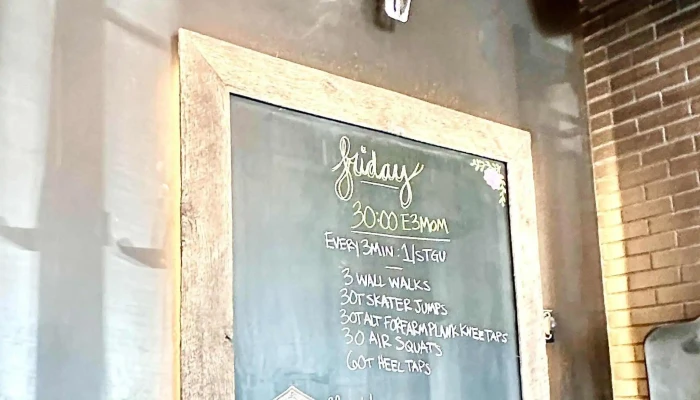 friday
30:00 E3MOM
EVERY 3 MIN - 1/STGU
3 WALL WALKS
30T SKATER JUMPS
30T ALT FOREARM PLANK KNEE TAPS
30 AIR SQUATS
60T HEEL TAPS